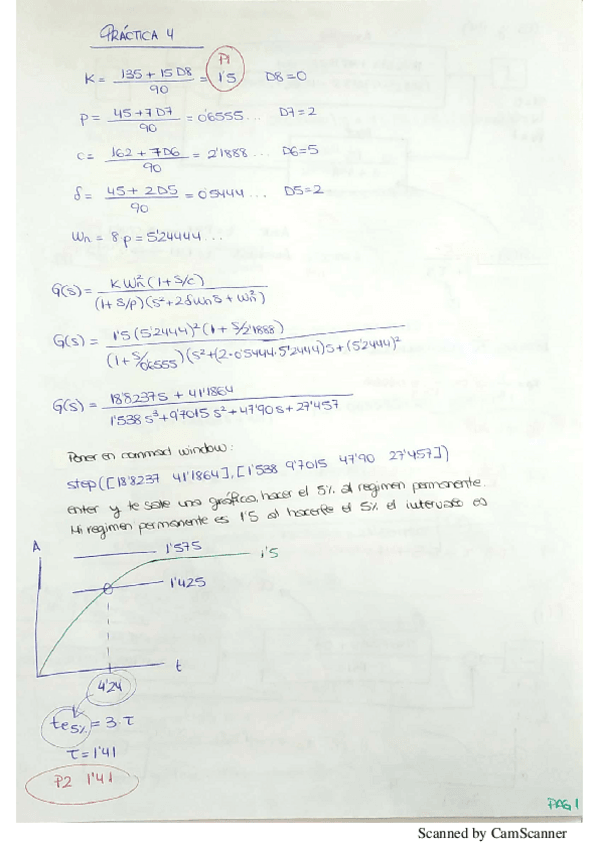 PRÁCTICA 4
P1
K = 135 + 15 D8 / 90 = 1'5 D8=0
p = 45 + 7 D7 / 90 = 0'6555... D7=2
c = 162 + 7D6 / 90 = 2'1888... D6=5
δ = 45 + 2 D5 / 90 = 0'5444... D5=2
Wn = 8p = 5'24444...
G(s) = K Wn² (1 + s/c) / (1 + s/p)(s² + 2δWns + Wn²)
G(s) = 1'5 (5'2444)² (1 + s/2'1888) / (1 + s/0'6555)(s² + (2·0'5444·5'2444)s + (5'2444)²
G(s) = 18'8237s + 41'1864 / 1'538 s³ + 9'7015 s² + 47'90 s + 27'457
Poner en commad window:
step([18'8237 41'1864],[1'538 9'7015 47'90 27'457])
enter y te sale una gráfica, hacer el 5% al regimen permanente.
Mi regimen permanente es 1'5 al hacerle el 5% el intervalo es
A
1'575
1'5
1'425
t
4'24
te5% = 3·τ
τ = 1'41
P2 1'41
PAG 1
Scanned by CamScanner